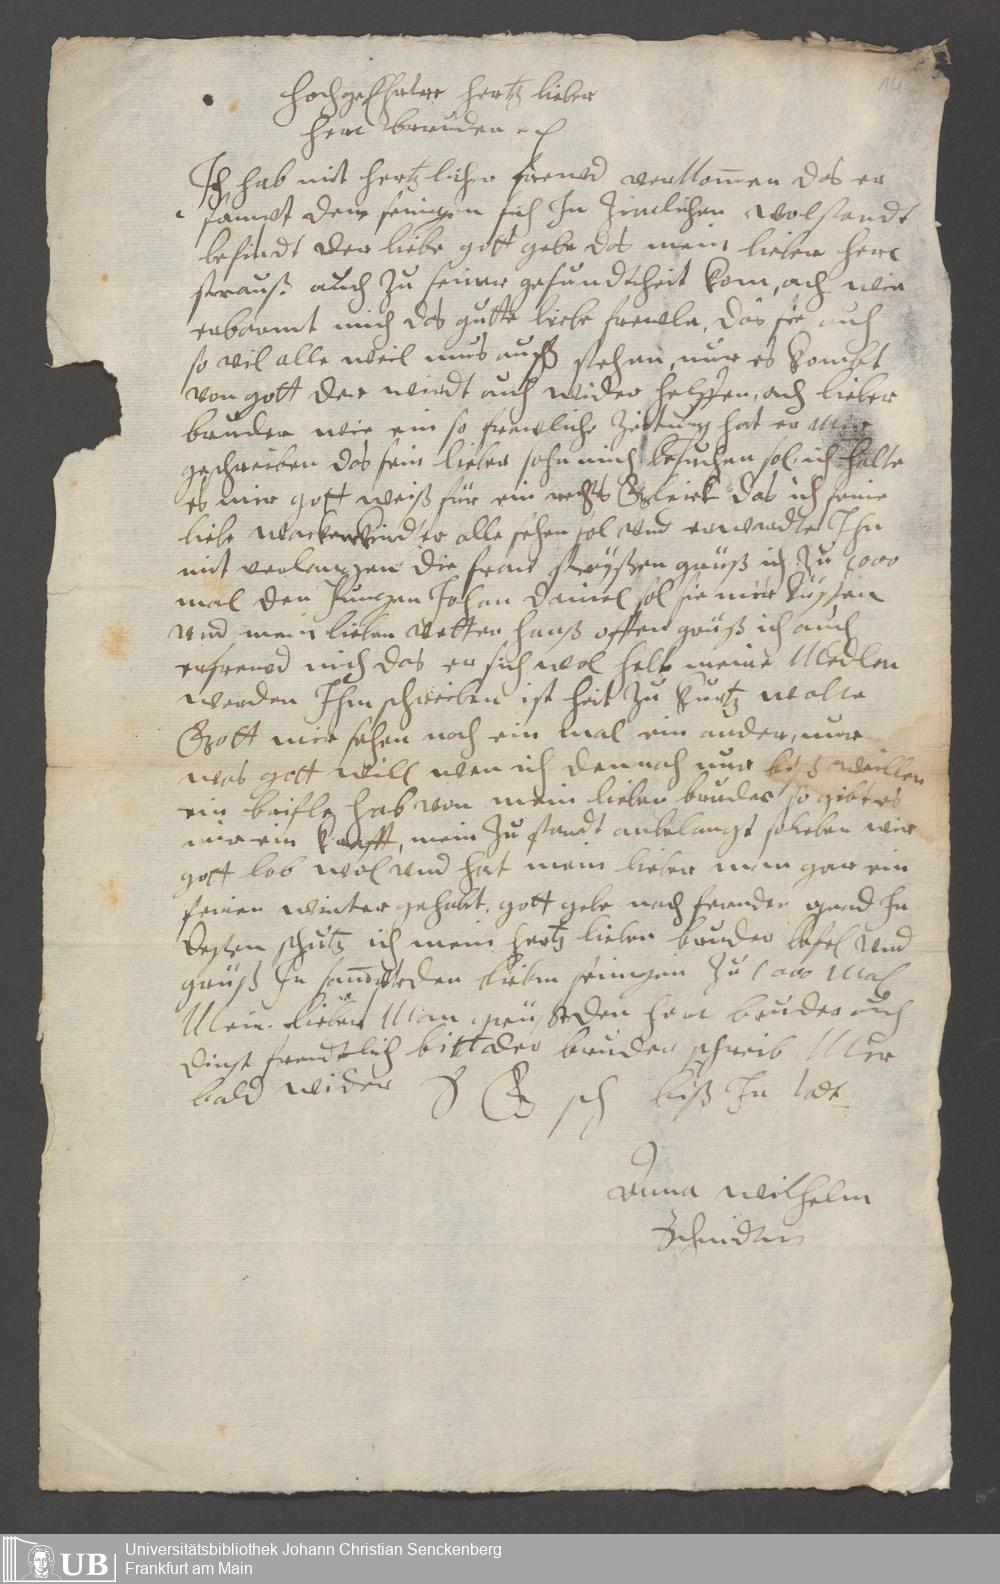 14
Hochgeehrter hertz lieber
herr bruder
Ich hab mit hertzlicher freud vernommen das er
sampt den seinigen sich In Zimlichen wolstandt
befindt der liebe gott gebe das mein lieber herr
strauß auch Zu seiner gesundtheit kom, ach wie
erbarmt mich das gutte liebe frewle, das sie auch
so vil alle weil mus auß stehen, nur es kombt
von gott der wirdt auch wider helffen, ach lieber
bruder wie ein so frewliche Zeitung hat er Mir
geschreiben das sein lieber sohn mich besuchen sol ich halte
es mir gott weiß für ein rechts Glück das ich seine
liebe kinder alle sehen sol und erwardte Ihn
mit verlangen die frau grüß ich Zu 1000
mal den Jungen Johan Daniel sol sie mir küssen
und mein lieben Vetter hanß offen grüß ich auch
erfreud mich das er sich wol helt meine Medlen
werden Ihm schreiben ist Zeit Zu kurtz wolte
Gott mir sehen noch ein mal ein ander, nur
was gott will wen ich dennoch nur biß weillen
ein brifle hab von mein lieben bruder so gibt es
mir ein krafft, mein Zu standt anbelangt so leben wir
gott lob wol und hat mein lieber man gar ein
feinen winter gehabt, gott gebe noch ferner gnad In
dessen schutz ich mein hertz lieben bruder befel und
grüß In sampt den lieben seinigen Zu 1000 Mal
Mein lieber Man grüßt den herr bruder auch
dinst freundtlich bitt der bruder schreib Mir
bald wider biß In todt
Anna Wilhelm
Schmidtin
UB
Universitätsbibliothek Johann Christian Senckenberg
Frankfurt am Main